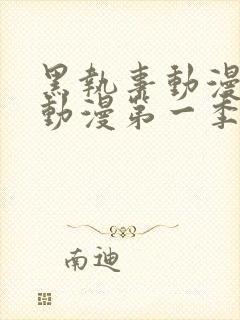 黑執事動漫
動漫第一季
南迪